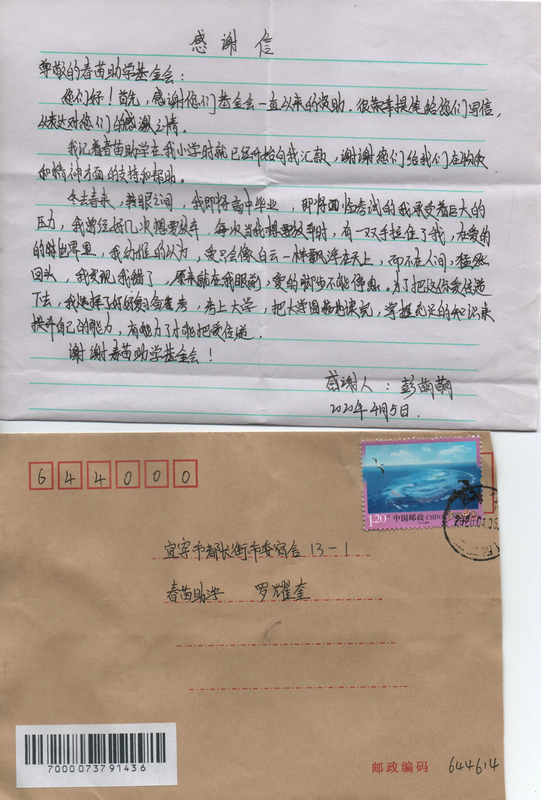 感谢信
尊敬的春苗助学基金会：
您们好！首先，感谢您们基金会一直以来的资助，很荣幸提笔给您们写信，
以表达对您们的感激之情。
我记着春苗助学在我小学时就已经开始向我汇款，谢谢您们给我们在物质
和精神方面的支持和帮助。
冬去春来，转眼之间，我即将高中毕业，即将面临考试的我承受着巨大的
压力，我曾经好几次想要放弃，每次当我想要放弃时，有一双手拉住了我，在爱的
的世界里，我幼稚的认为，爱只会像白云一样飘浮在天上，而不在人间，猛然
回头，我发现我错了，原来就在我眼前，爱的脚步不能停息。为了把这份爱传递
下去，我选择了好好复习备高考，考上大学，把大学图书馆读完，掌握充足的知识来
提升自己的能力，有能力了才能把爱传递。
谢谢春苗助学基金会！
感谢人：彭萌萌
2020年4月5日.
644000
1.20元
中国邮政 CHINA
2020.04.05
宜宾市都长街市委宿舍 13-1
春苗助学 罗耀奎
7000073791436
邮政编码 644614